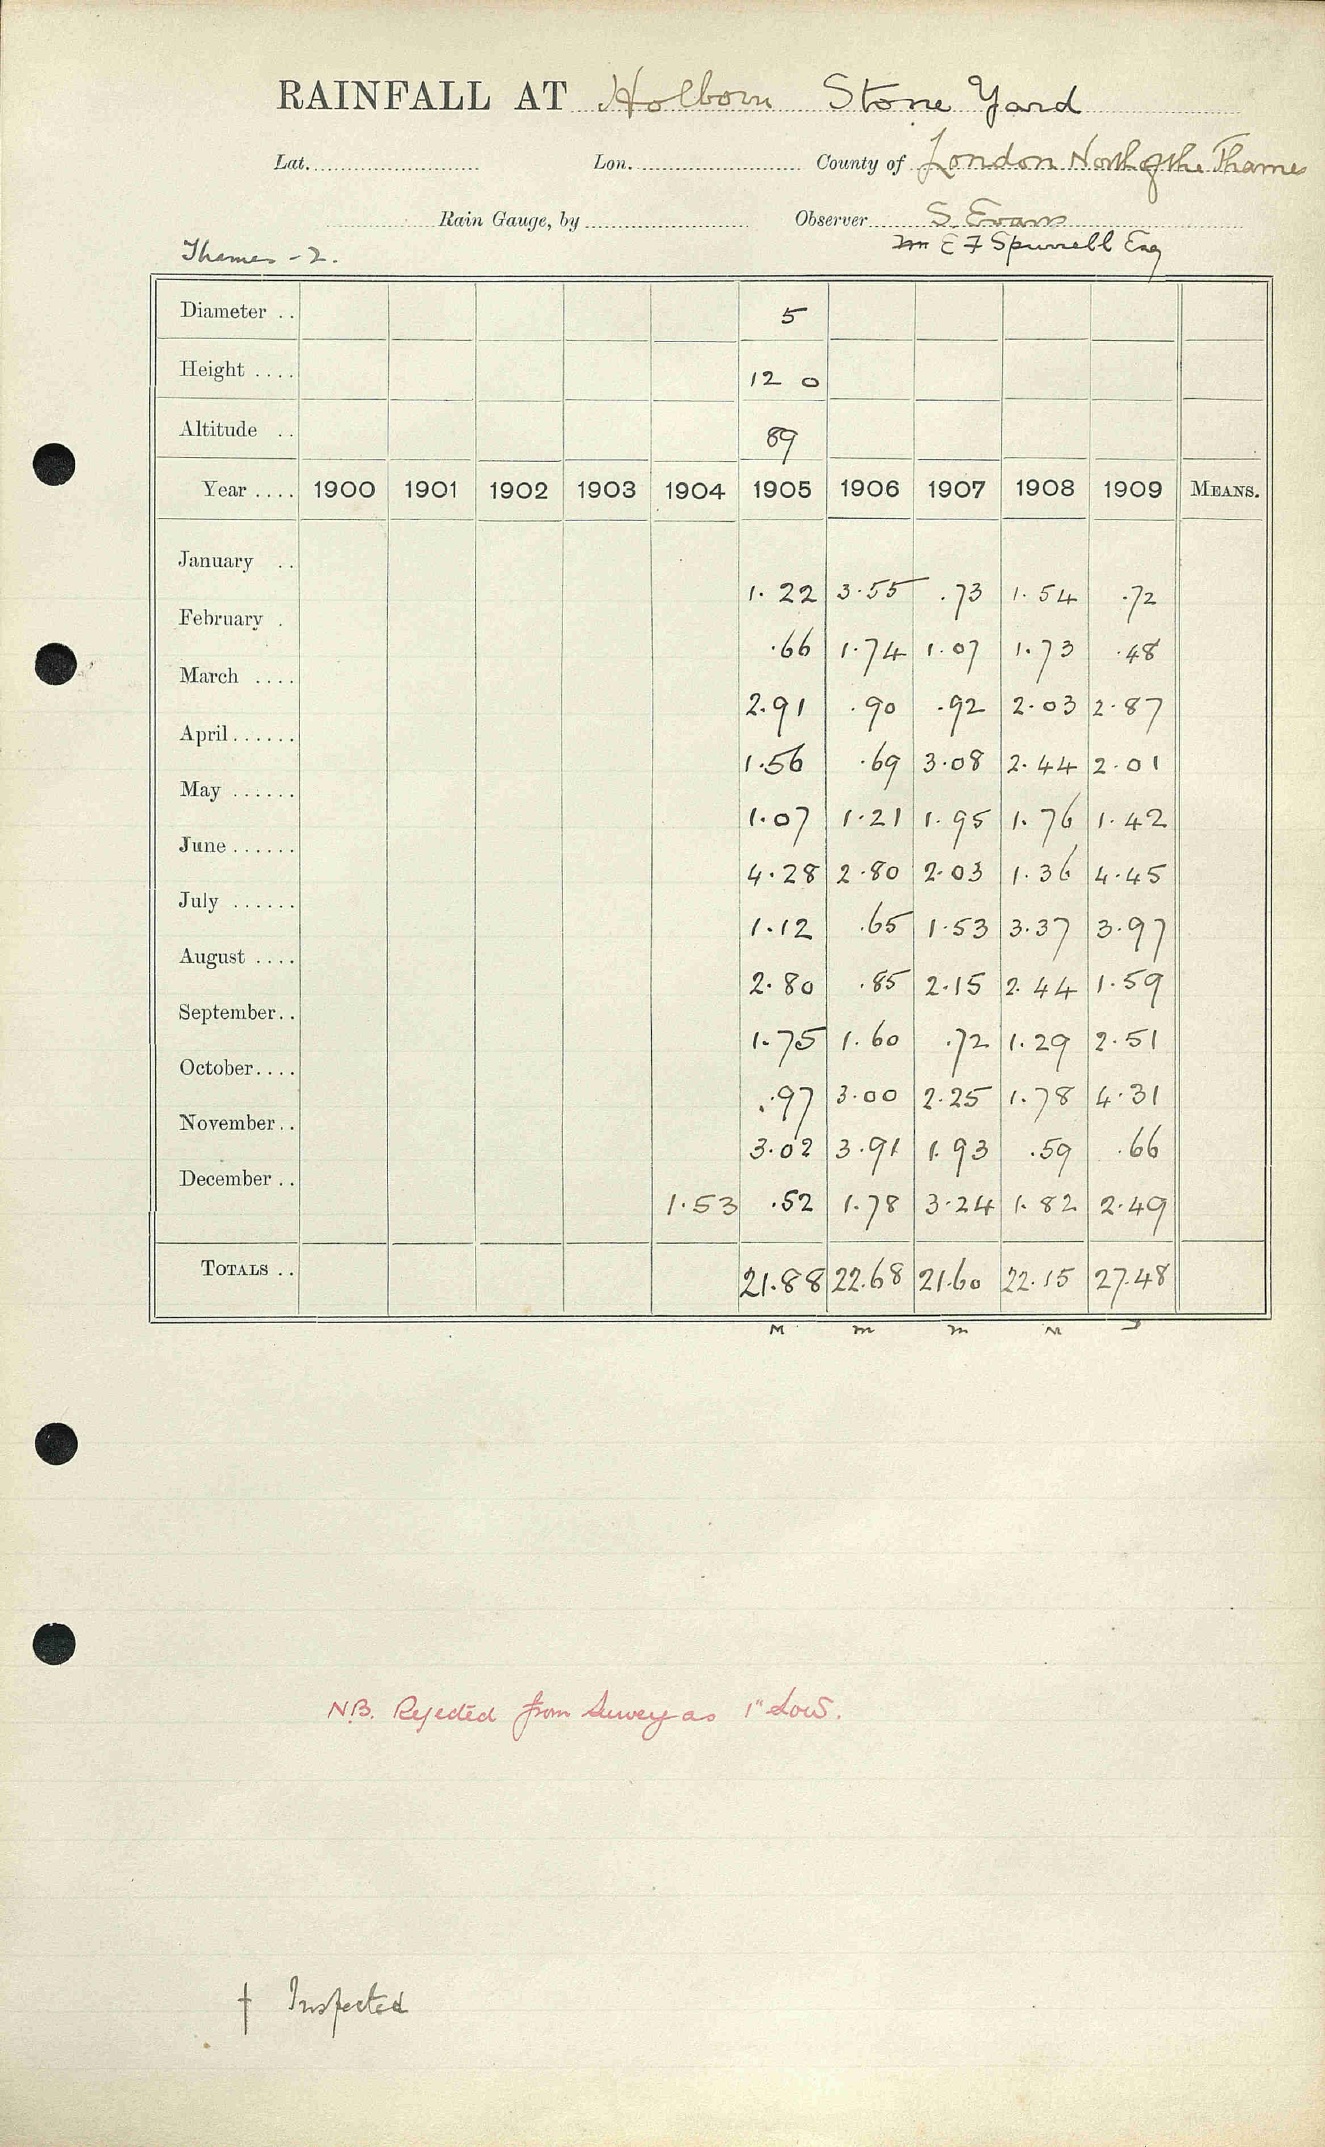 RAINFALL AT Holborn Stone Yard
Lat. Lon. County of London North of the Thames
Rain Gauge, by Observer S. Evans
Thames - 2. E F Spurrell Esq
Diameter .. 5
Height .... 12 0
Altitude .. 89
Year .... 1900 1901 1902 1903 1904 1905 1906 1907 1908 1909 MEANS.
January .. 1.22 3.55 .73 1.54 .72
February . .66 1.74 1.07 1.73 .48
March .... 2.91 .90 .92 2.03 2.87
April...... 1.56 .69 3.08 2.44 2.01
May ...... 1.07 1.21 1.95 1.76 1.42
June ...... 4.28 2.80 2.03 1.36 4.45
July ...... 1.12 .65 1.53 3.37 3.97
August .... 2.80 .85 2.15 2.44 1.59
September.. 1.75 1.60 .72 1.29 2.51
October.... .97 3.00 2.25 1.78 4.31
November.. 3.02 3.91 1.93 .59 .66
December .. 1.53 .52 1.78 3.24 1.82 2.49
TOTALS .. 21.88 22.68 21.60 22.15 27.48
M m m M
N.B. Rejected from Survey as 1" Low.
† Inspected